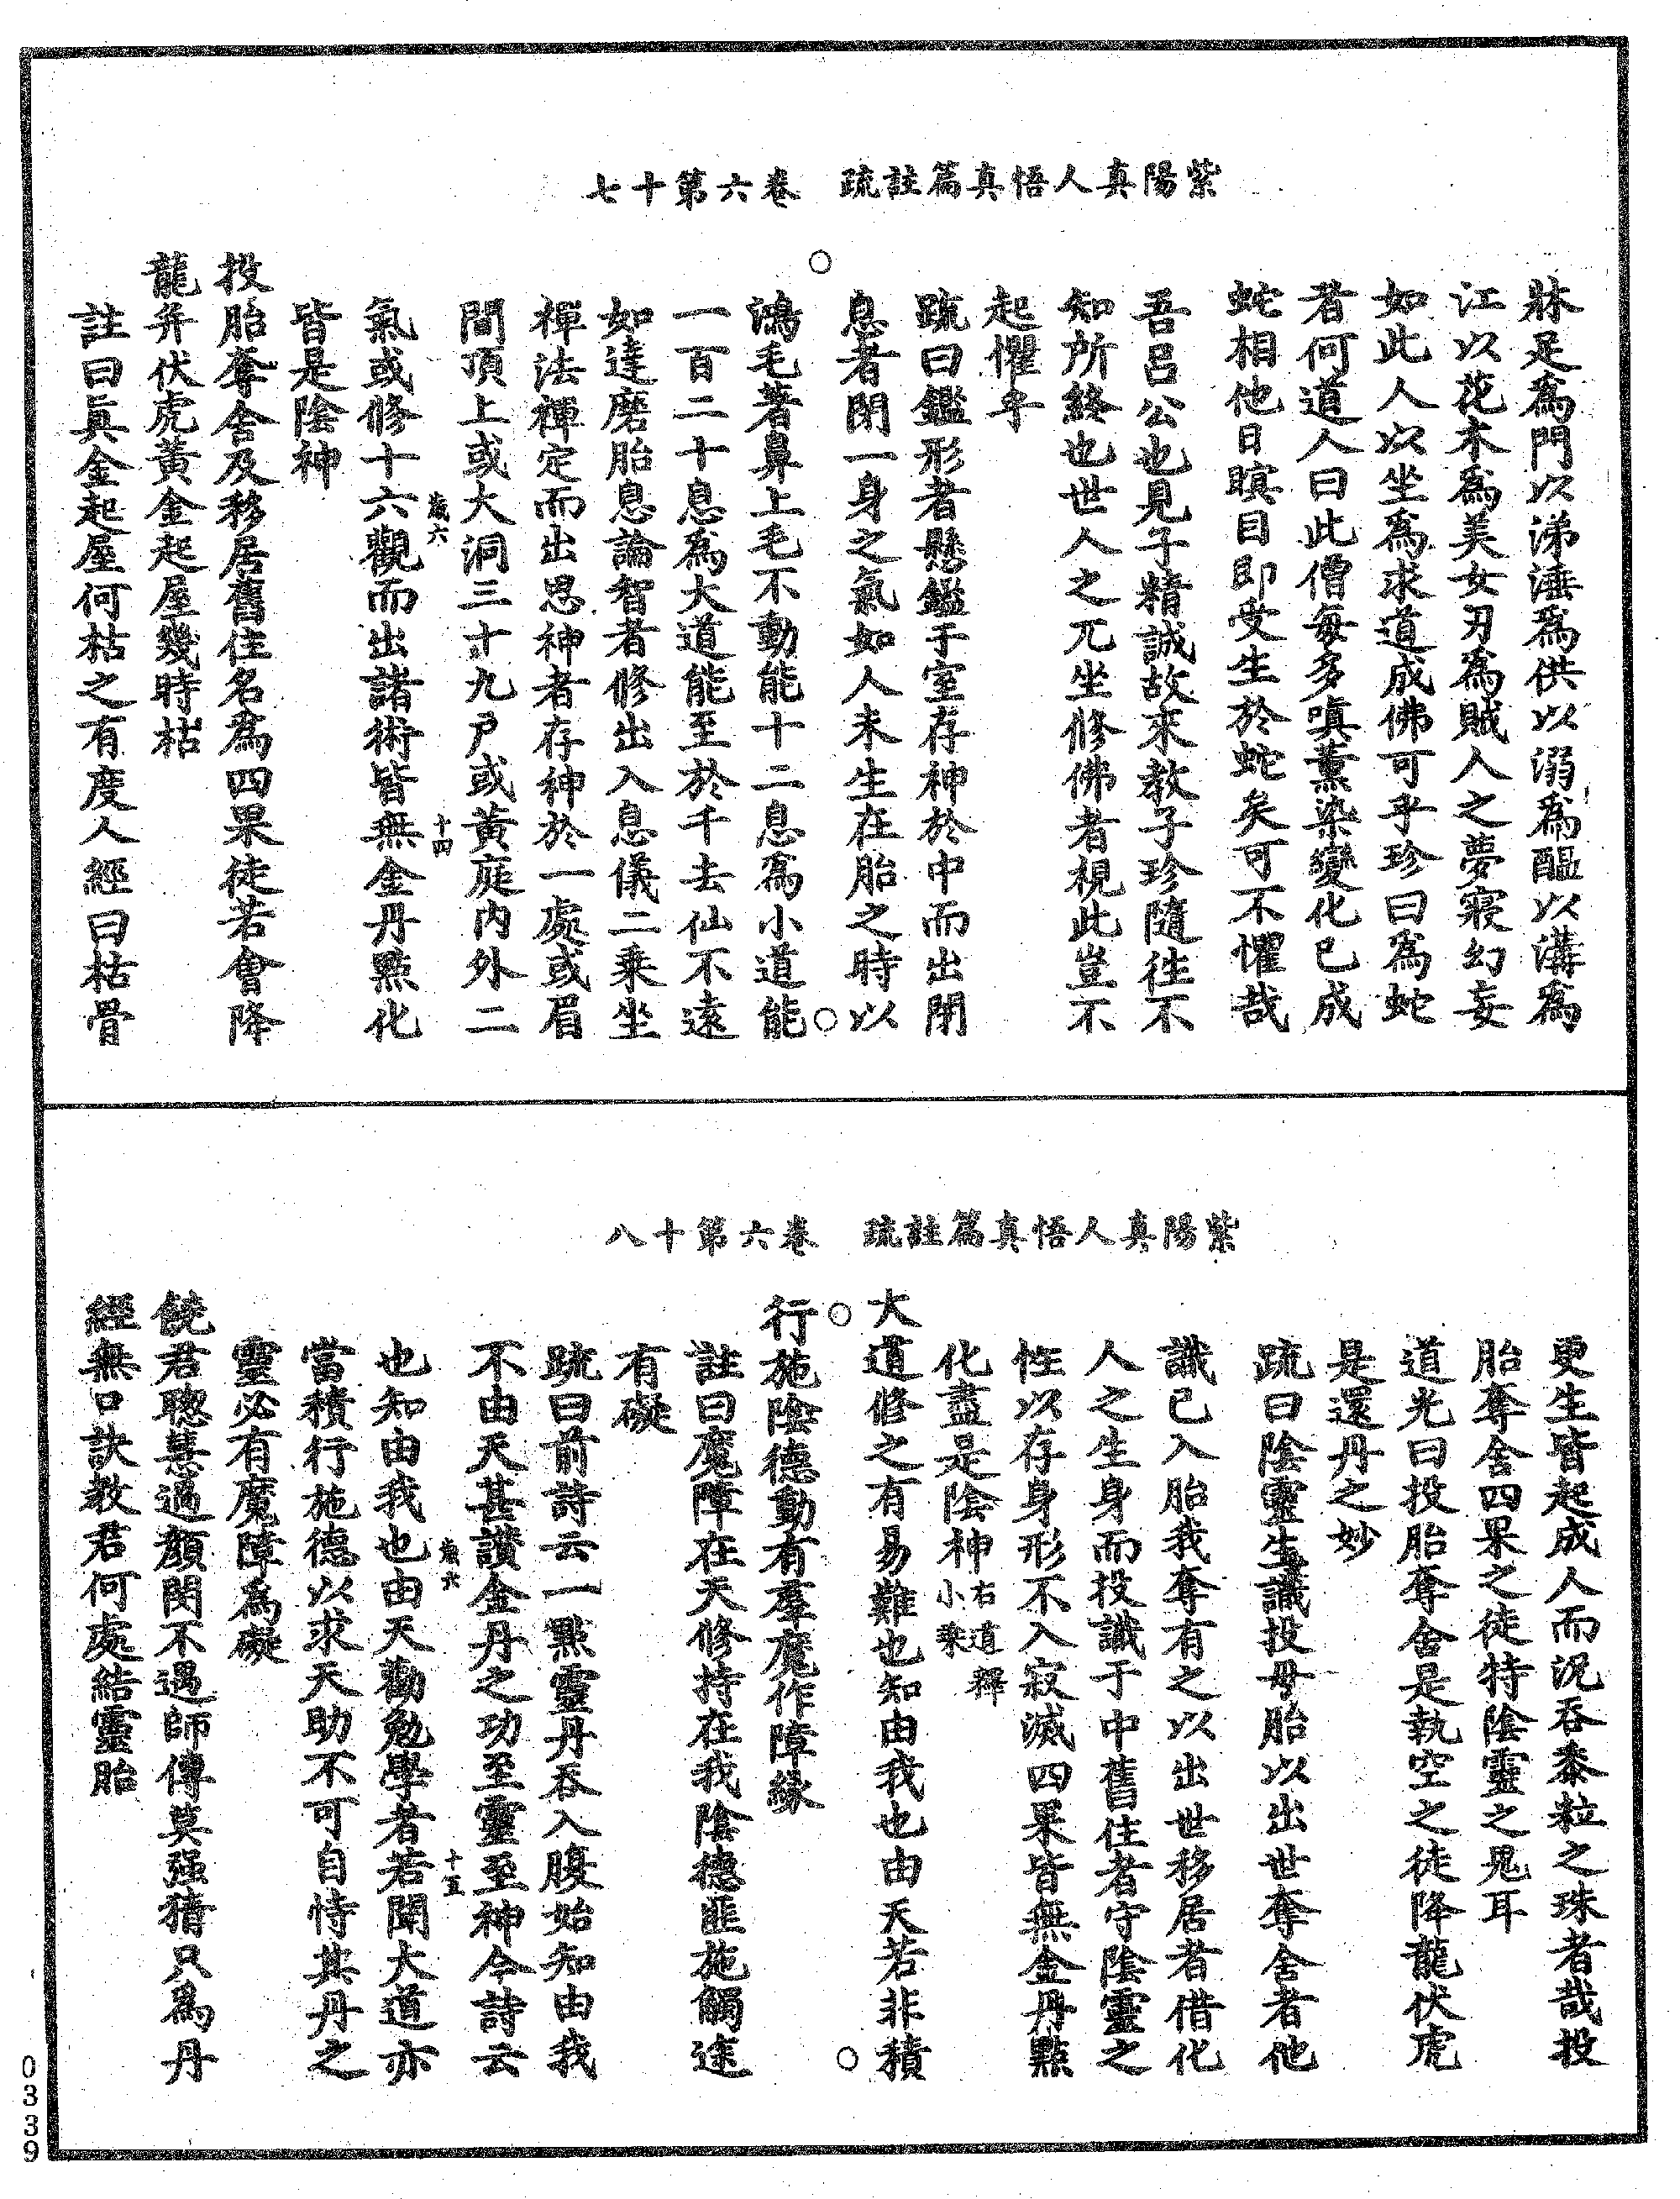 紫陽真人悟真篇註疏　卷六第十七
牀足爲門以涕涶爲供以溺爲醖以溝爲
江以花木爲美女刃爲賊人之夢寢幻妄
如此人以坐爲求道成佛可乎珍曰爲蛇
若何道人曰此僧每多嗔薰染變化已成
蛇相他日瞑目即受生於蛇矣可不懼哉
吾呂公也見子精誠故來教子珍隨往不
知所終也世人之兀坐修佛者視此豈不
起懼乎
疏曰鑑形者懸鑑于室存神於中而出閉
息者閉一身之氣如人未生在胎之時以
鴻毛著鼻上毛不動能十二息爲小道能
一百二十息爲大道能至於千去仙不遠
如達磨胎息論智者修出入息儀二乘坐
禪法禪定而出思神者存神於一處或眉
間頂上或大洞三十九戶或黃庭内外二
歲六　十四
氣或修十六觀而出諸術皆無金丹點化
皆是陰神
投胎奪舍及移居舊住名爲四果徒若會降
龍并伏虎黃金起屋幾時枯
註曰眞金起屋何枯之有度人經曰枯骨
紫陽真人悟真篇註疏　卷六第十八
更生皆起成人而況吞黍粒之珠者哉投
胎奪舍四果之徒特陰靈之鬼耳
道光曰投胎奪舍是執空之徒降龍伏虎
是還丹之妙
疏曰陰靈生識投母胎以出世奪舍者他
識已入胎我奪有之以出世移居者借化
人之生身而投識于中舊住者守陰靈之
性以存身形不入寂滅四果皆無金丹點
化盡是陰神右道釋小乘
大道修之有易難也知由我也由天若非積
行施陰德動有羣魔作障緣
註曰魔障在天修持在我陰德匪施觸途
有礙
疏曰前詩云一點靈丹吞入腹始知由我
不由天甚讚金丹之功至靈至神今詩云
歲六　十五
也知由我也由天勸勉學者若聞大道亦
當積行施德以求天助不可自恃其丹之
靈必有魔障爲礙
饒君聰慧過顏閔不遇師傳莫强猜只爲丹
經無口訣教君何處結靈胎
0339